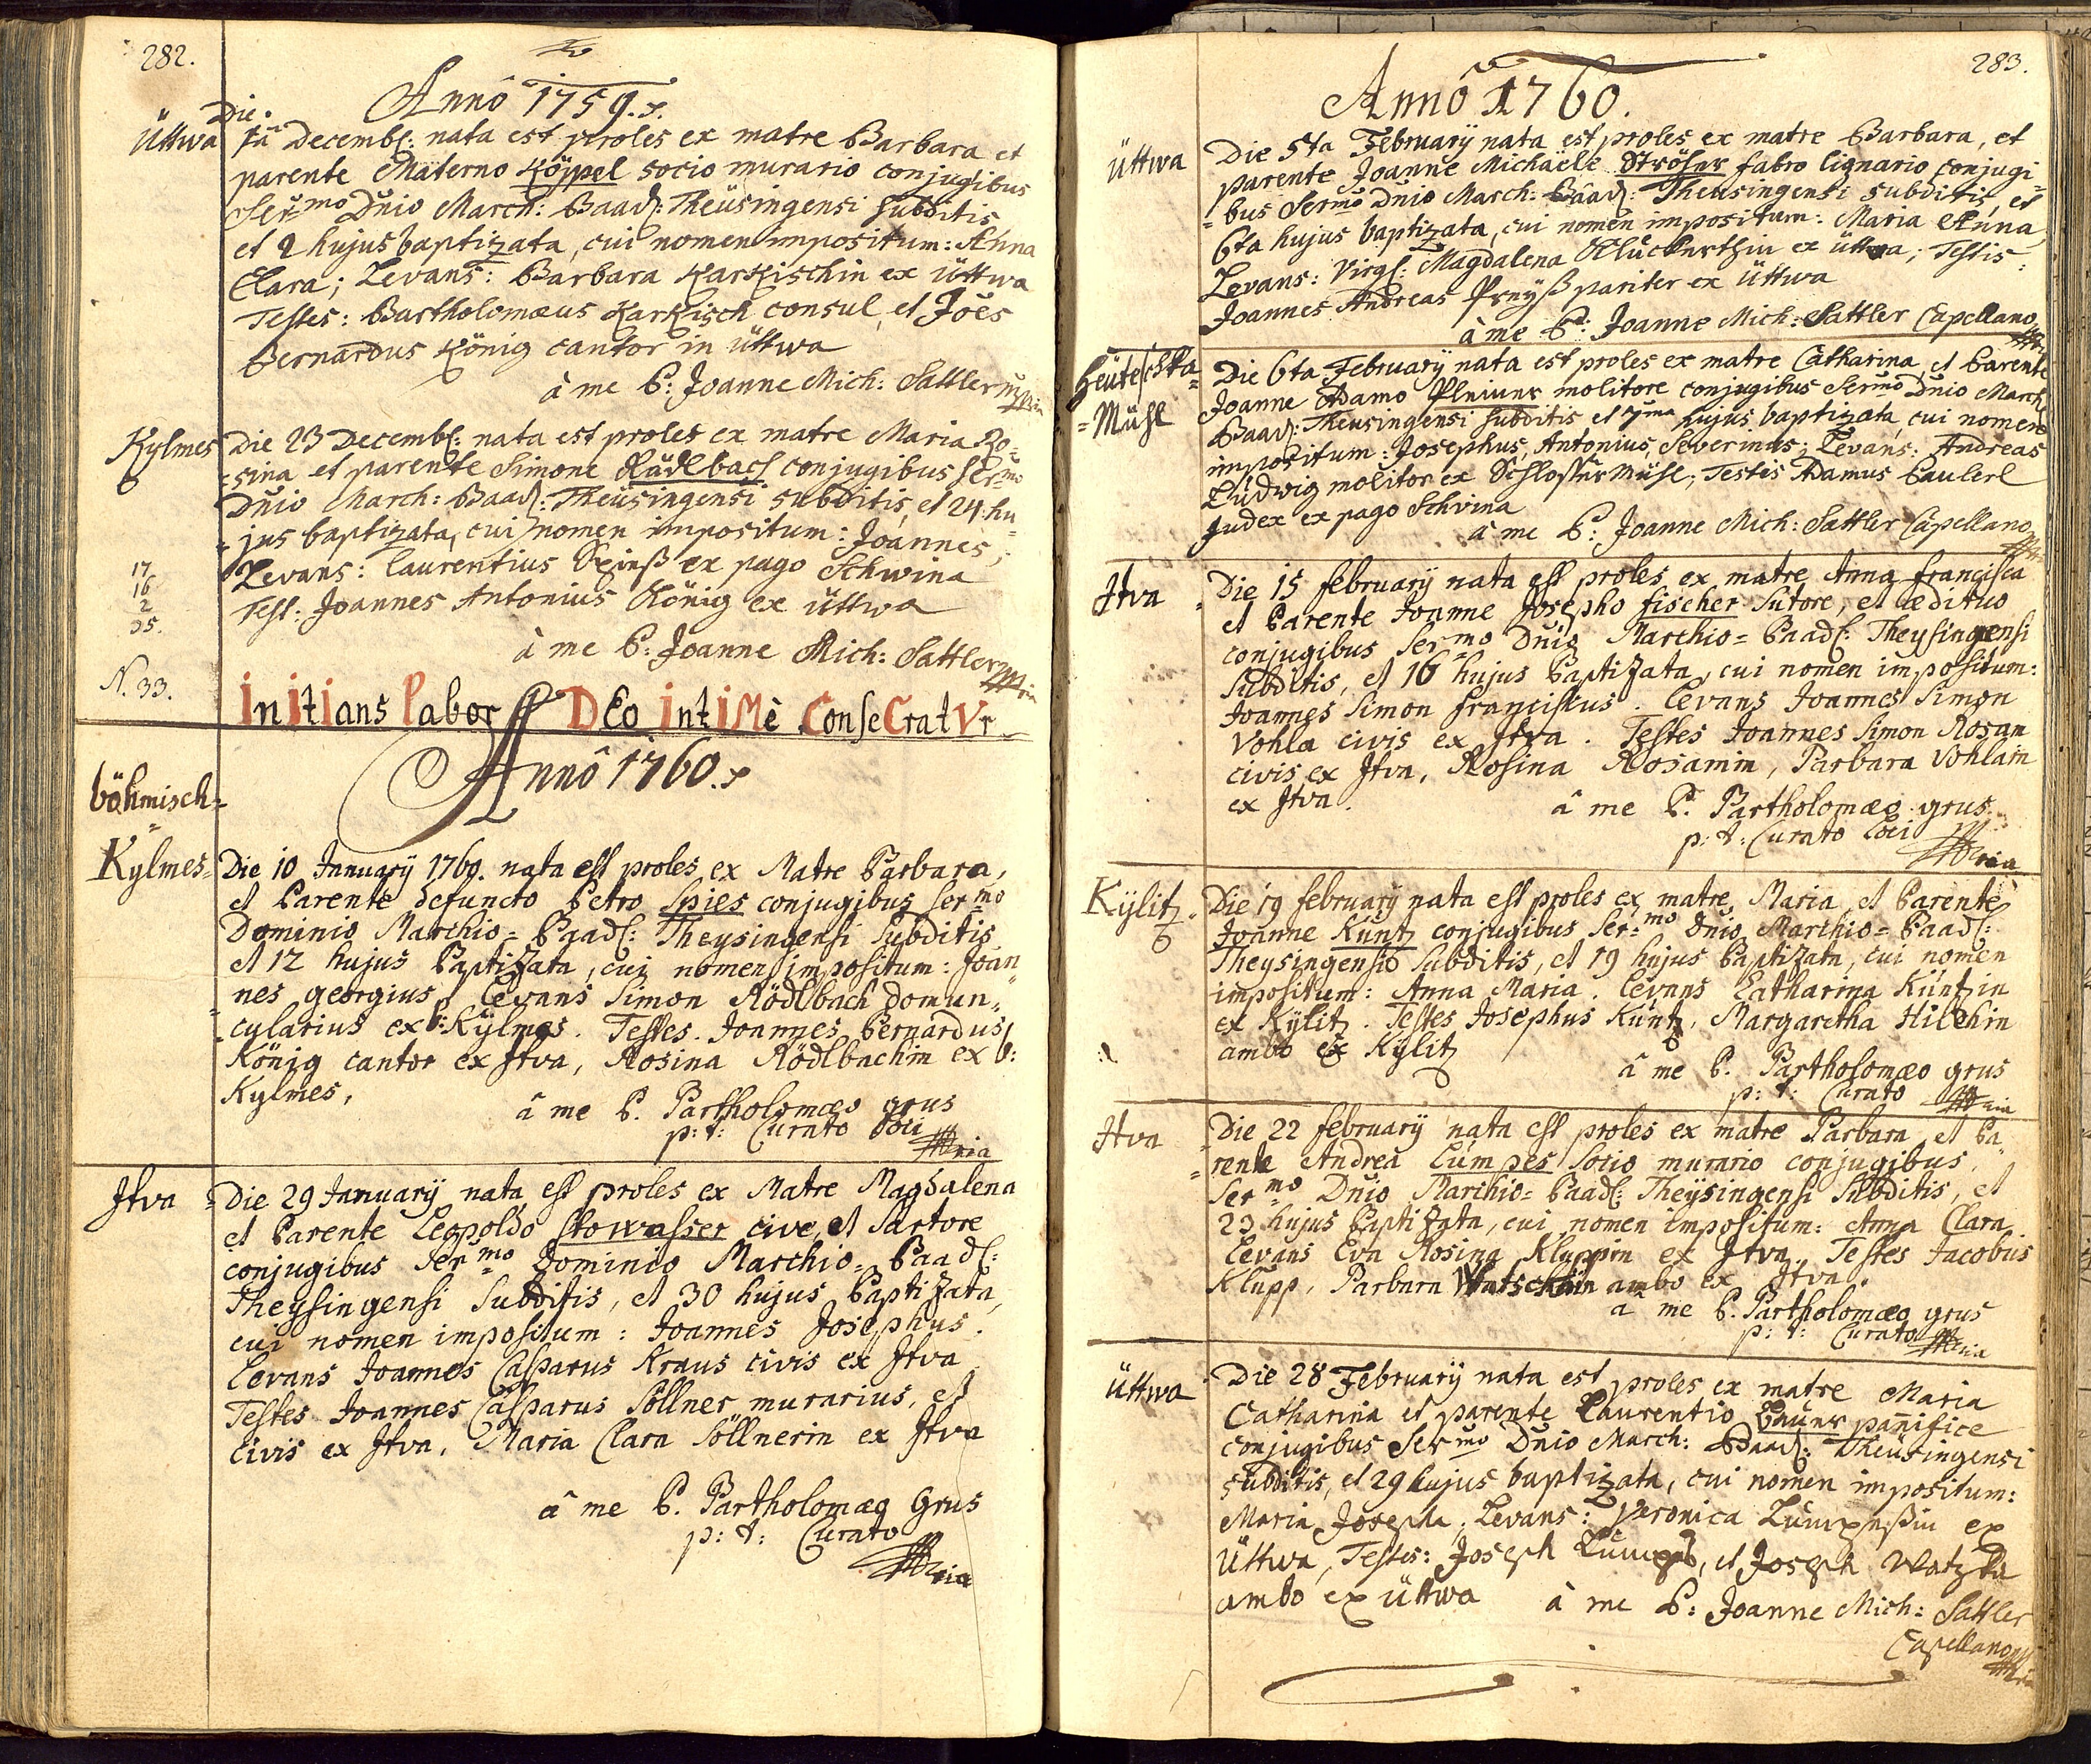 282.
Annô 1759.
Üttwa
Die
1a Decembl: nata est proles ex matre Barbara et
parente Materno Köppel socio murario conjugibus
Sermo Dnio March: Baad: Theüsingensi subditis
et 2 hujus baptizata, cui nomen impositum: Anna
Clara; Levans: Barbara Karkischin ex üttwa
Testes: Bartholomæus Karkisch consul, et Joes
Bernardus König cantor in üttwa
à me P: Joanne Mich: Sattler mpria
Kylmes
Die 23 Decembl: nata est proles ex matre Maria Ro=
=sina et parente Simone Rädlbach conjugibus Sermo
Dnio March: Baad: Theüsingensi subditis, et 24 hu=
=jus baptizata, cui nomen impositum: Joannes;
Levans: Laurentius ex pago Schwina
Test: Joannes Antonius König ex üttwa
à me P: Joanne Mich: Sattler mpria
17
16
2
35.
N. 33.
InItIans Labor DEo intIMè ConseCratVr
Annô 1760.
böhmisch=
Kylmes=
Die 10 Januarÿ 1760. nata est proles ex Matre Barbara,
et Parente defuncto Petro Spies conjugibus Sermo
Dominio Marchio= Baadl: Theysingensi Subditis,
et 12 hujus Baptizata, cui nomen impositum: Joan
nes georgius, Levans Simon Rödlbach domun=
cularius ex b: Kÿlmes. Testes Joannes Bernardus
König cantor ex Jtva, Rosina Rödlbachin ex b:
Kylmes,
â me P. Partholomæo grus
p: t: Curato Loci mpria
Jtva
Die 29 Januarÿ nata est proles ex Matre Magdalena
et Parente Leopoldo Stowasser cive, et Sartore
conjugibus Sermo Dominio Marchio= Baadl:
Theysingensi Subditis, et 30 hujus Baptizata,
cui nomen impositum: Joannes Josephus.
Levans Joannes Casparus Kraus civis ex Jtva
Testes Joannes Casparus Söllner murarius, et
civis ex Jtva, Maria Clara Söllnerin ex Jtva
â me P. Partholomæo Grus
p: t: Curato
mpria
283.
Annô 1760.
üttwa
Die 5ta Februarÿ nata est proles ex matre Barbara, et
parente Joanne Michaele Ströhr fabro lignario conjugi=
=bus Sermo Dnio March: Baad: Theusingensi subditis, et
6ta hujus baptizata, cui nomen impositum: Maria Anna,
Levans: Virgl: Magdalena ex üttwa; Testis:
Joannes Andreas Preyß pariter ex üttwa
à me P: Joanne Mich: Sattler Capellano mpria
Heuteschka=
=Mühl
Die 6ta Februarÿ nata est proles ex matre Catharina, et Parente
Joanne Adamo Pleiner molitore conjugibus Sermo Dnio March
Baad: Theusingensi subditis et 7ma hujus baptizata, cui nomen
impositum: Josephus, Antonius, Severinus; Levans: Andreas
Ludwig molitor ex Schlosser Mühl; Testes Adamus Baulerl
Judex ex pago Schvina
à me P: Joanne Mich: Sattler Capellano
mpria
Jtva
Die 15 februarÿ nata est proles ex matre Anna francisca
et Parente Joanne Josepho fischer Sutore, et ædituo
conjugibus Sermo Dnio Marchio= Baadl: Theysingensi
Subditis, et 16 hujus Baptizata, cui nomen impositum:
Joannes Simon franciscus. Levans Joannes Simon
Vohla civis ex Jtva. Testes Joannes Simon Rosam
civis ex Jtva, Rosina Rosamin, Parbara Vohlain
ex Jtva.
â me P. Partholomæo grus
p: t: Curato Loci
mpria
Kÿlitz.
Die 19 februarÿ nata est proles ex matre Maria, et Parente
Joanne Küntz conjugibus Sermo Dnio Marchio= Baadl:
Theysingensis Subditis, et 19 hujus Baptizata, cui nomen
impositum: Anna Maria. Levans Catharina Küntzin
ex Kÿlitz. Testes Josephus Küntz, Margaretha Hilchin
ambo ex Kÿlitz
â me P. Partholomæo grus
p: t: Curato mpria
Jtva
Die 22 februarÿ nata est proles ex matre Parbara, et Pa=
=rente Andrea Lumpes Socio murario conjugibus
Sermo Dnio Marchio= Baadl: Theÿsingensi Subditis, et
23 hujus Baptizata, cui nomen impositum: Anna Clara,
Levans Eva Rosina Kluppin ex Jtva. Testes Jacobus
Klupp, Parbara ambo ex Jtva.
a me P. Partholomæo grus
p: t: Curato mpria
üttwa
Die 28 Februarÿ nata est proles ex matre Maria
Catharina et parente Laurentio Bauer panifice
conjugibus Sermo Dnio March: Baad: Theüsingensi
subditis, et 29 hujus baptizata, cui nomen impositum:
Maria Josepha; Levans: Veronica Lumpeßin ex
Üttwa, Testes: Joseph Lumpes, et Joseph Watzka
ambo ex üttwa à me P: Joanne Mich: Sattler
Capellano mpria